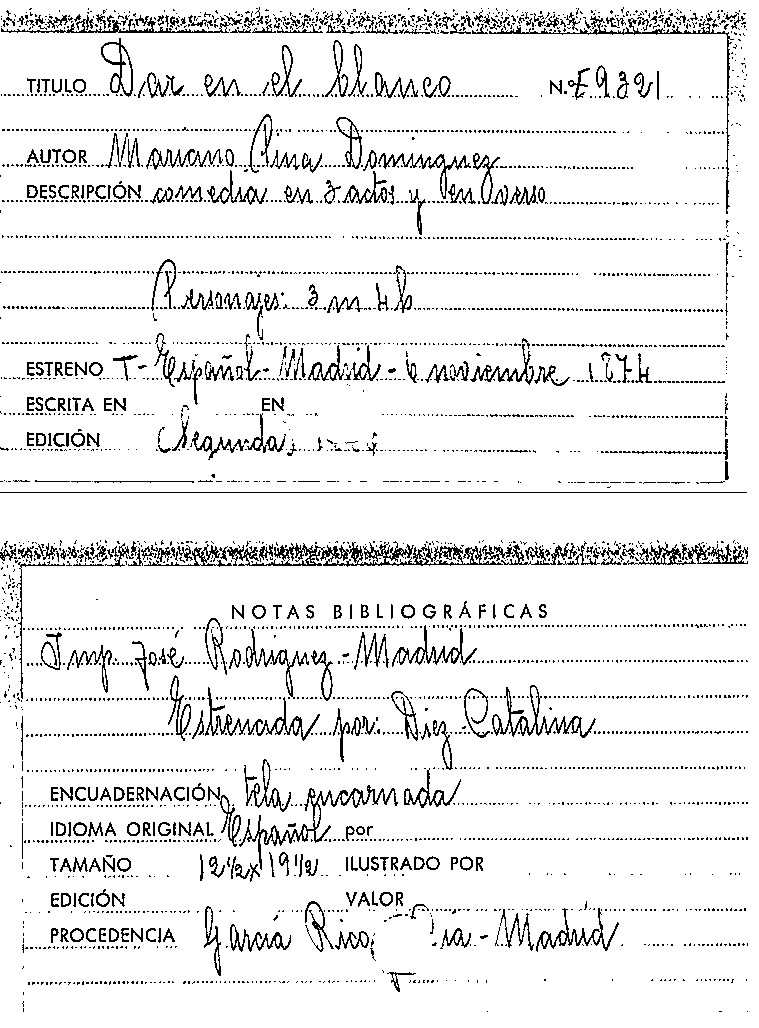 TITULO Dar en el blanco N.º E9321
AUTOR Mariano Pina Dominguez
DESCRIPCIÓN comedia en 3 actos y en verso
Personajes: 3 m 4 h
ESTRENO T-Español-Madrid-6 noviembre 1874
ESCRITA EN EN
EDICIÓN Segunda
NOTAS BIBLIOGRÁFICAS
Imp José Rodriguez-Madrid
Estrenada por: Diez Catalina
ENCUADERNACIÓN tela encarnada
IDIOMA ORIGINAL Español por
TAMAÑO 12½x19½ ILUSTRADO POR
EDICIÓN VALOR
PROCEDENCIA García Rico, Cía-Madrid